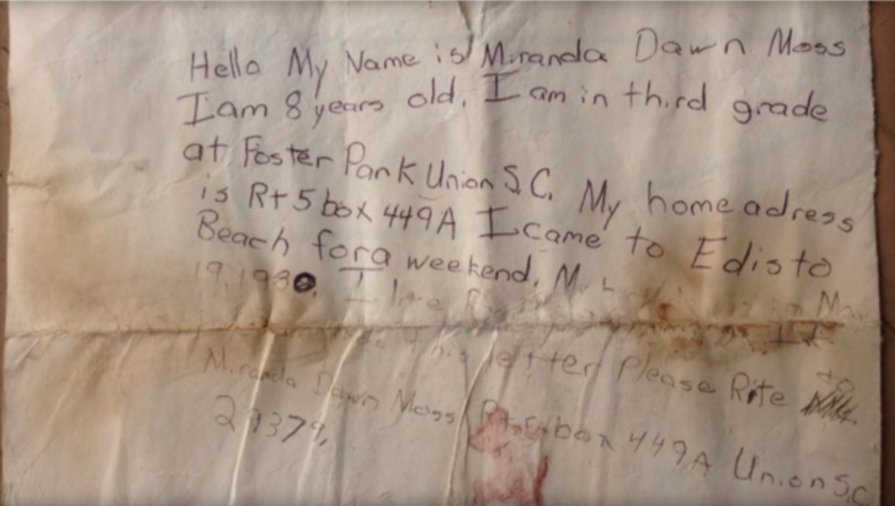 Hello My Name is Miranda Dawn Moss
I am 8 years old. I am in third grade
at Foster Park Union S.C. My home adress
is Rt 5 box 449A I came to Edisto
Beach for a weekend. My
19, 1980. I like
this letter Please Rite to
Miranda Dawn Moss Rt 5 box 449A Union S.C.
29379,